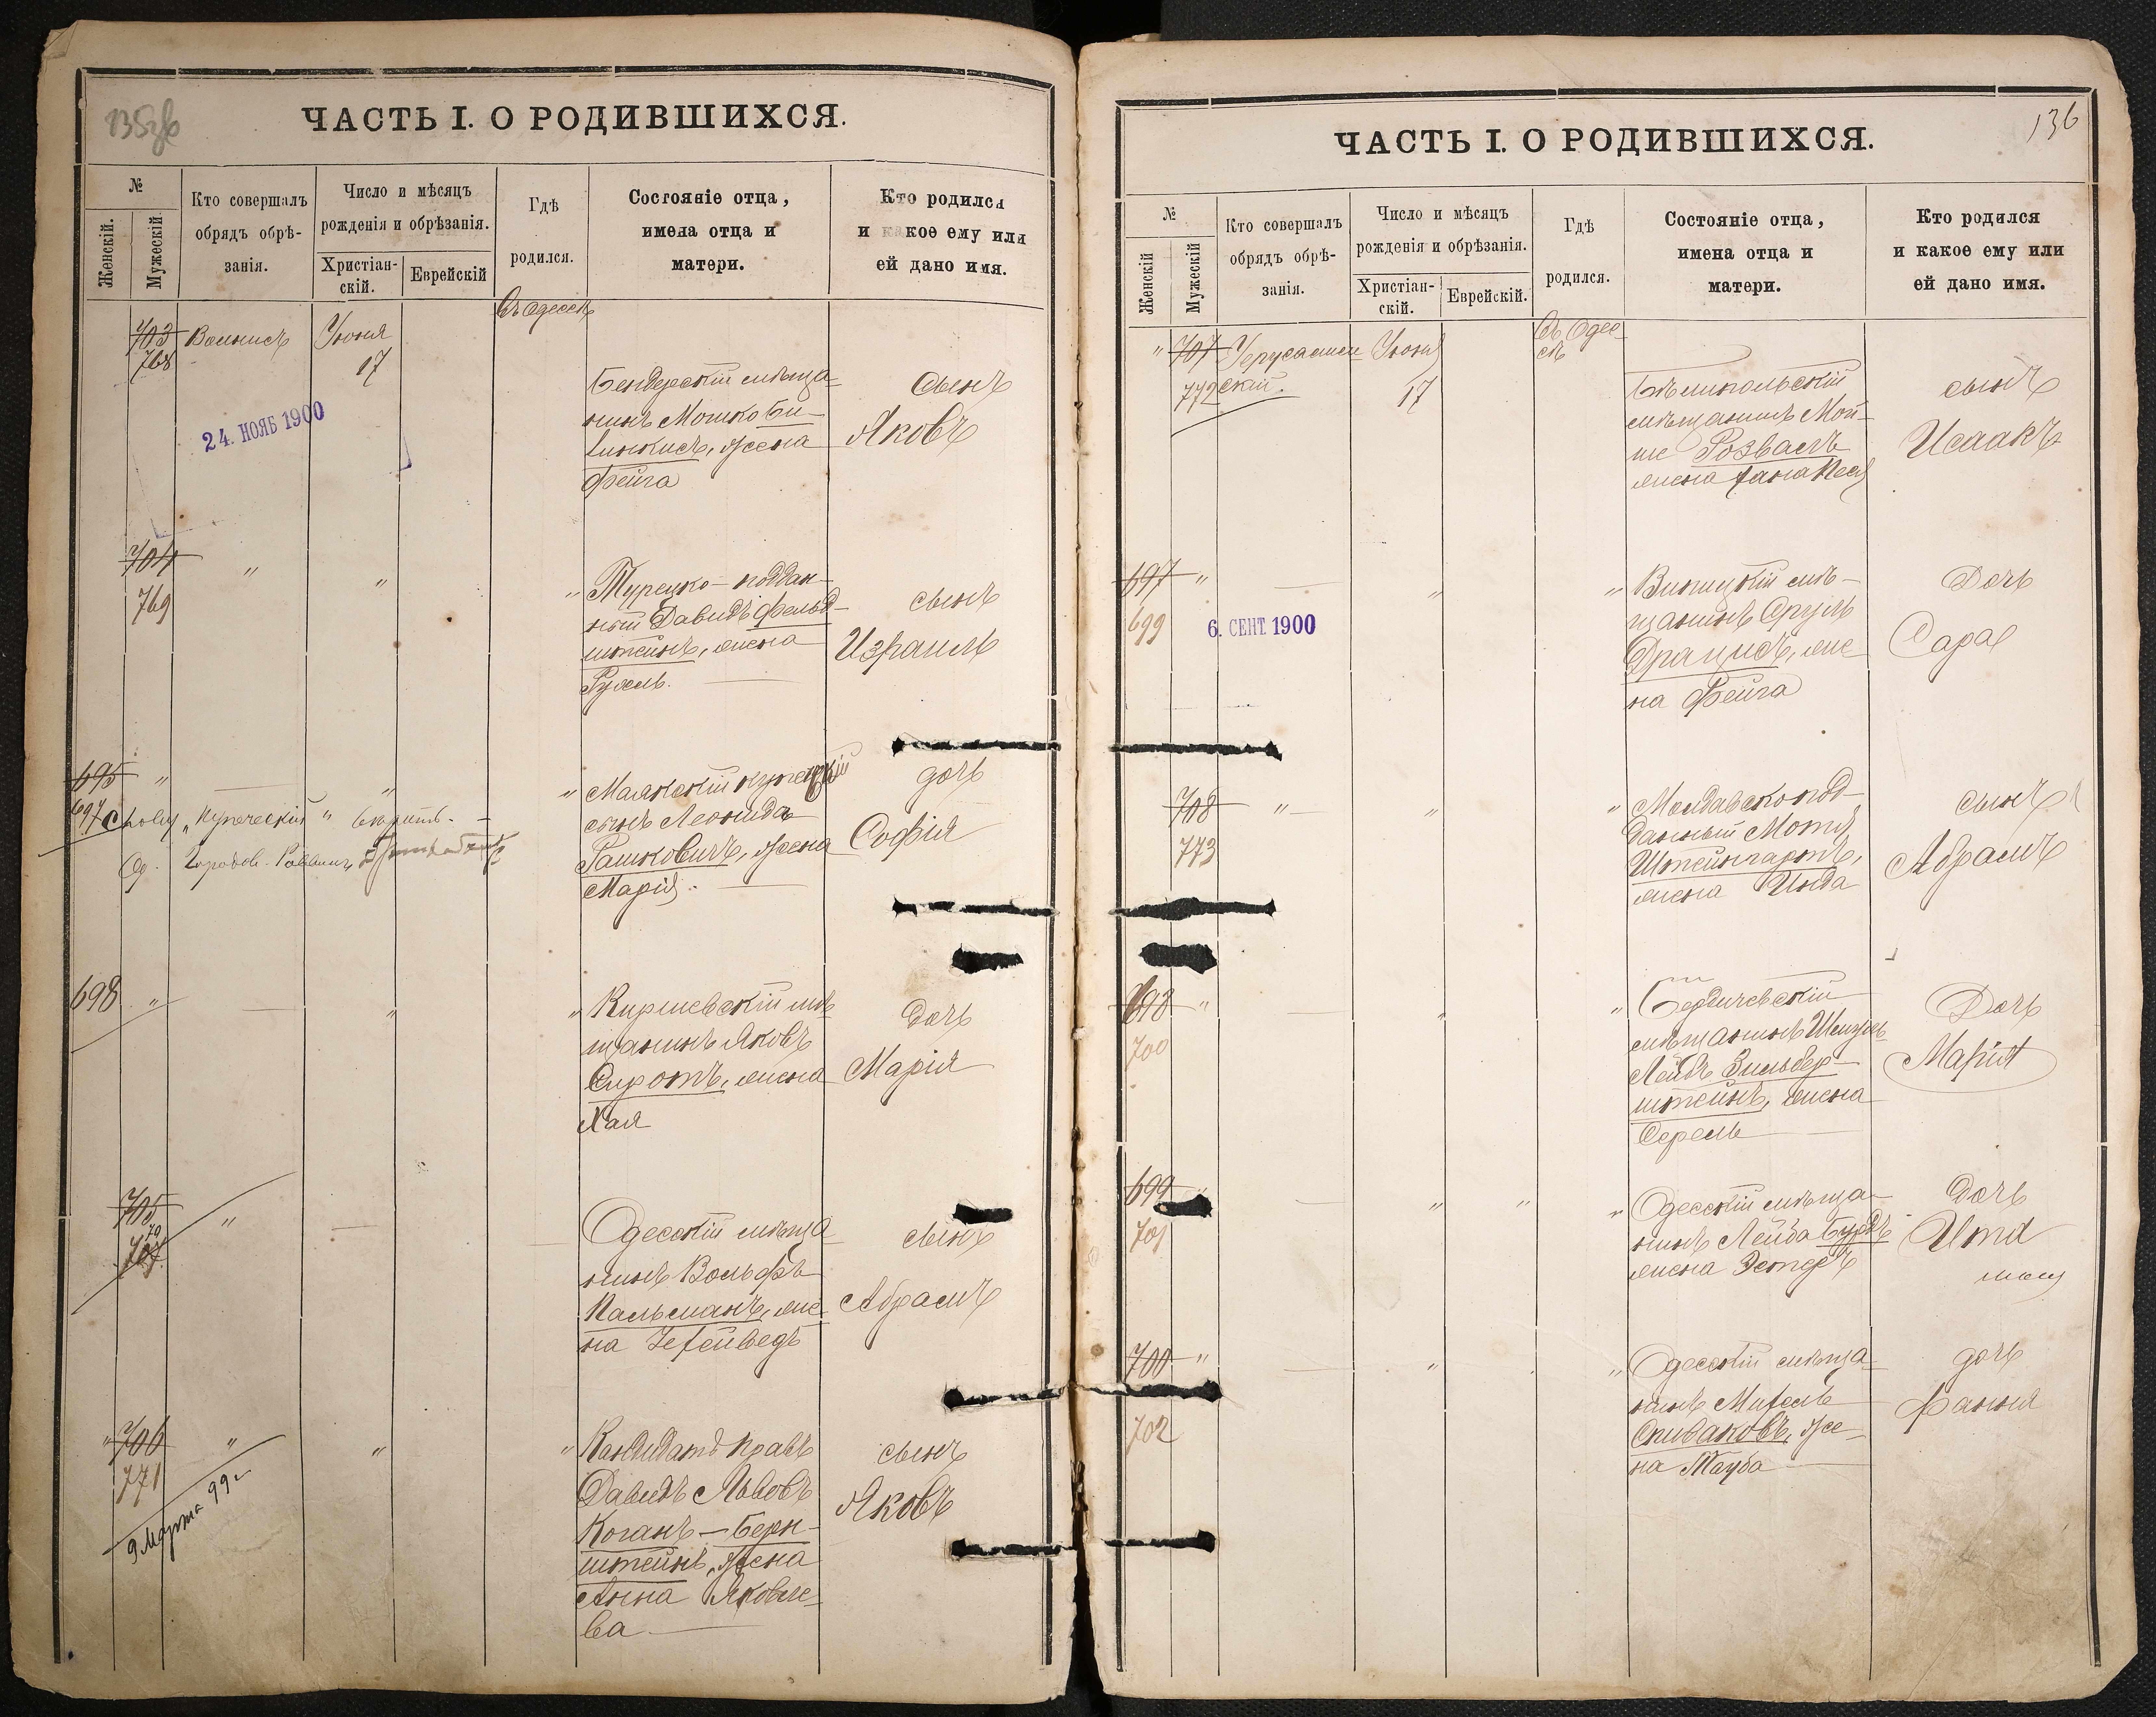 135об
ЧАСТЬ I. О РОДИВШИХСЯ.
№
Женскій.
Мужескій
Кто совершалъ
обрядъ обрѣ-
занія.
Число и мѣсяцъ
рожденія и обрѣзанія.
Христіан-
скій.
Еврейскій
Гдѣ
родился.
Состояніе отца,
имена отца и
матери.
Кто родился
и какое ему или
ей дано имя.
703
768
Іюня
17
Въ Одессѣ
24. НОЯБ 1900
Бендерскій мѣща-
нинъ Мошко Би-
жена
Фейга
сынъ
Яковъ
704
769
" " "
Турецко-поддан-
ный Давидъ Фельд-
штейнъ, жена
Рухель.
сынъ
Израиль
695 " " "
697
Слово "Купеческій"
Од. Городов. Раввинъ
Маякскій купеческій
сынъ Леонидъ
Рашковичъ, жена
Марія.
дочь
Софія
698 " " "
мѣ-
щанинъ Яковъ
Сиротъ, жена
Хая
дочь
Марія
705
770
"
Одесскій мѣща-
нинъ Вольфъ
Кальманъ, же-
на
сынъ
Абрамъ
" 706 " " "
771
9 Марта 99 г.
Кандидатъ правъ
Давидъ Львовъ
Коганъ-Берн-
штейнъ, жена
Анна Яковле-
ва
сынъ
Яковъ
136
ЧАСТЬ I. О РОДИВШИХСЯ.
№
Женскій
Мужескій
Кто совершалъ
обрядъ обрѣ-
занія.
Число и мѣсяцъ
рожденія и обрѣзанія.
Христіан-
скій.
Еврейскій.
Гдѣ
родился.
Состояніе отца,
имена отца и
матери.
Кто родился
и какое ему или
ей дано имя.
" 707
772
Іерусалим-
скій.
Іюня
17
Въ Одес-
сѣ
мѣщанинъ Мой-
ше Розвалъ
жена Хана Песя
сынъ
Исаакъ
697 " " "
699
6. СЕНТ 1900
Винницкій мѣ-
щанинъ Сруль
же-
на Фейга
Дочь
Сара
708 " " "
773
Молдавскопод-
данный Мотя
Штейнгартъ,
жена Инда
сынъ
Абрамъ
698 " " "
700
Бердичевскій
мѣщанинъ Шмуль
Лейбъ Зильбер-
штейнъ, жена
Серель
Дочь
Марія
699 " " " "
701
Одесскій мѣща-
нинъ Лейба
жена Эстеръ
дочь
Ита
700 " " "
702
Одесскій мѣща-
нинъ Михель
Спиваковъ, же-
на Тауба
дочь
Фання